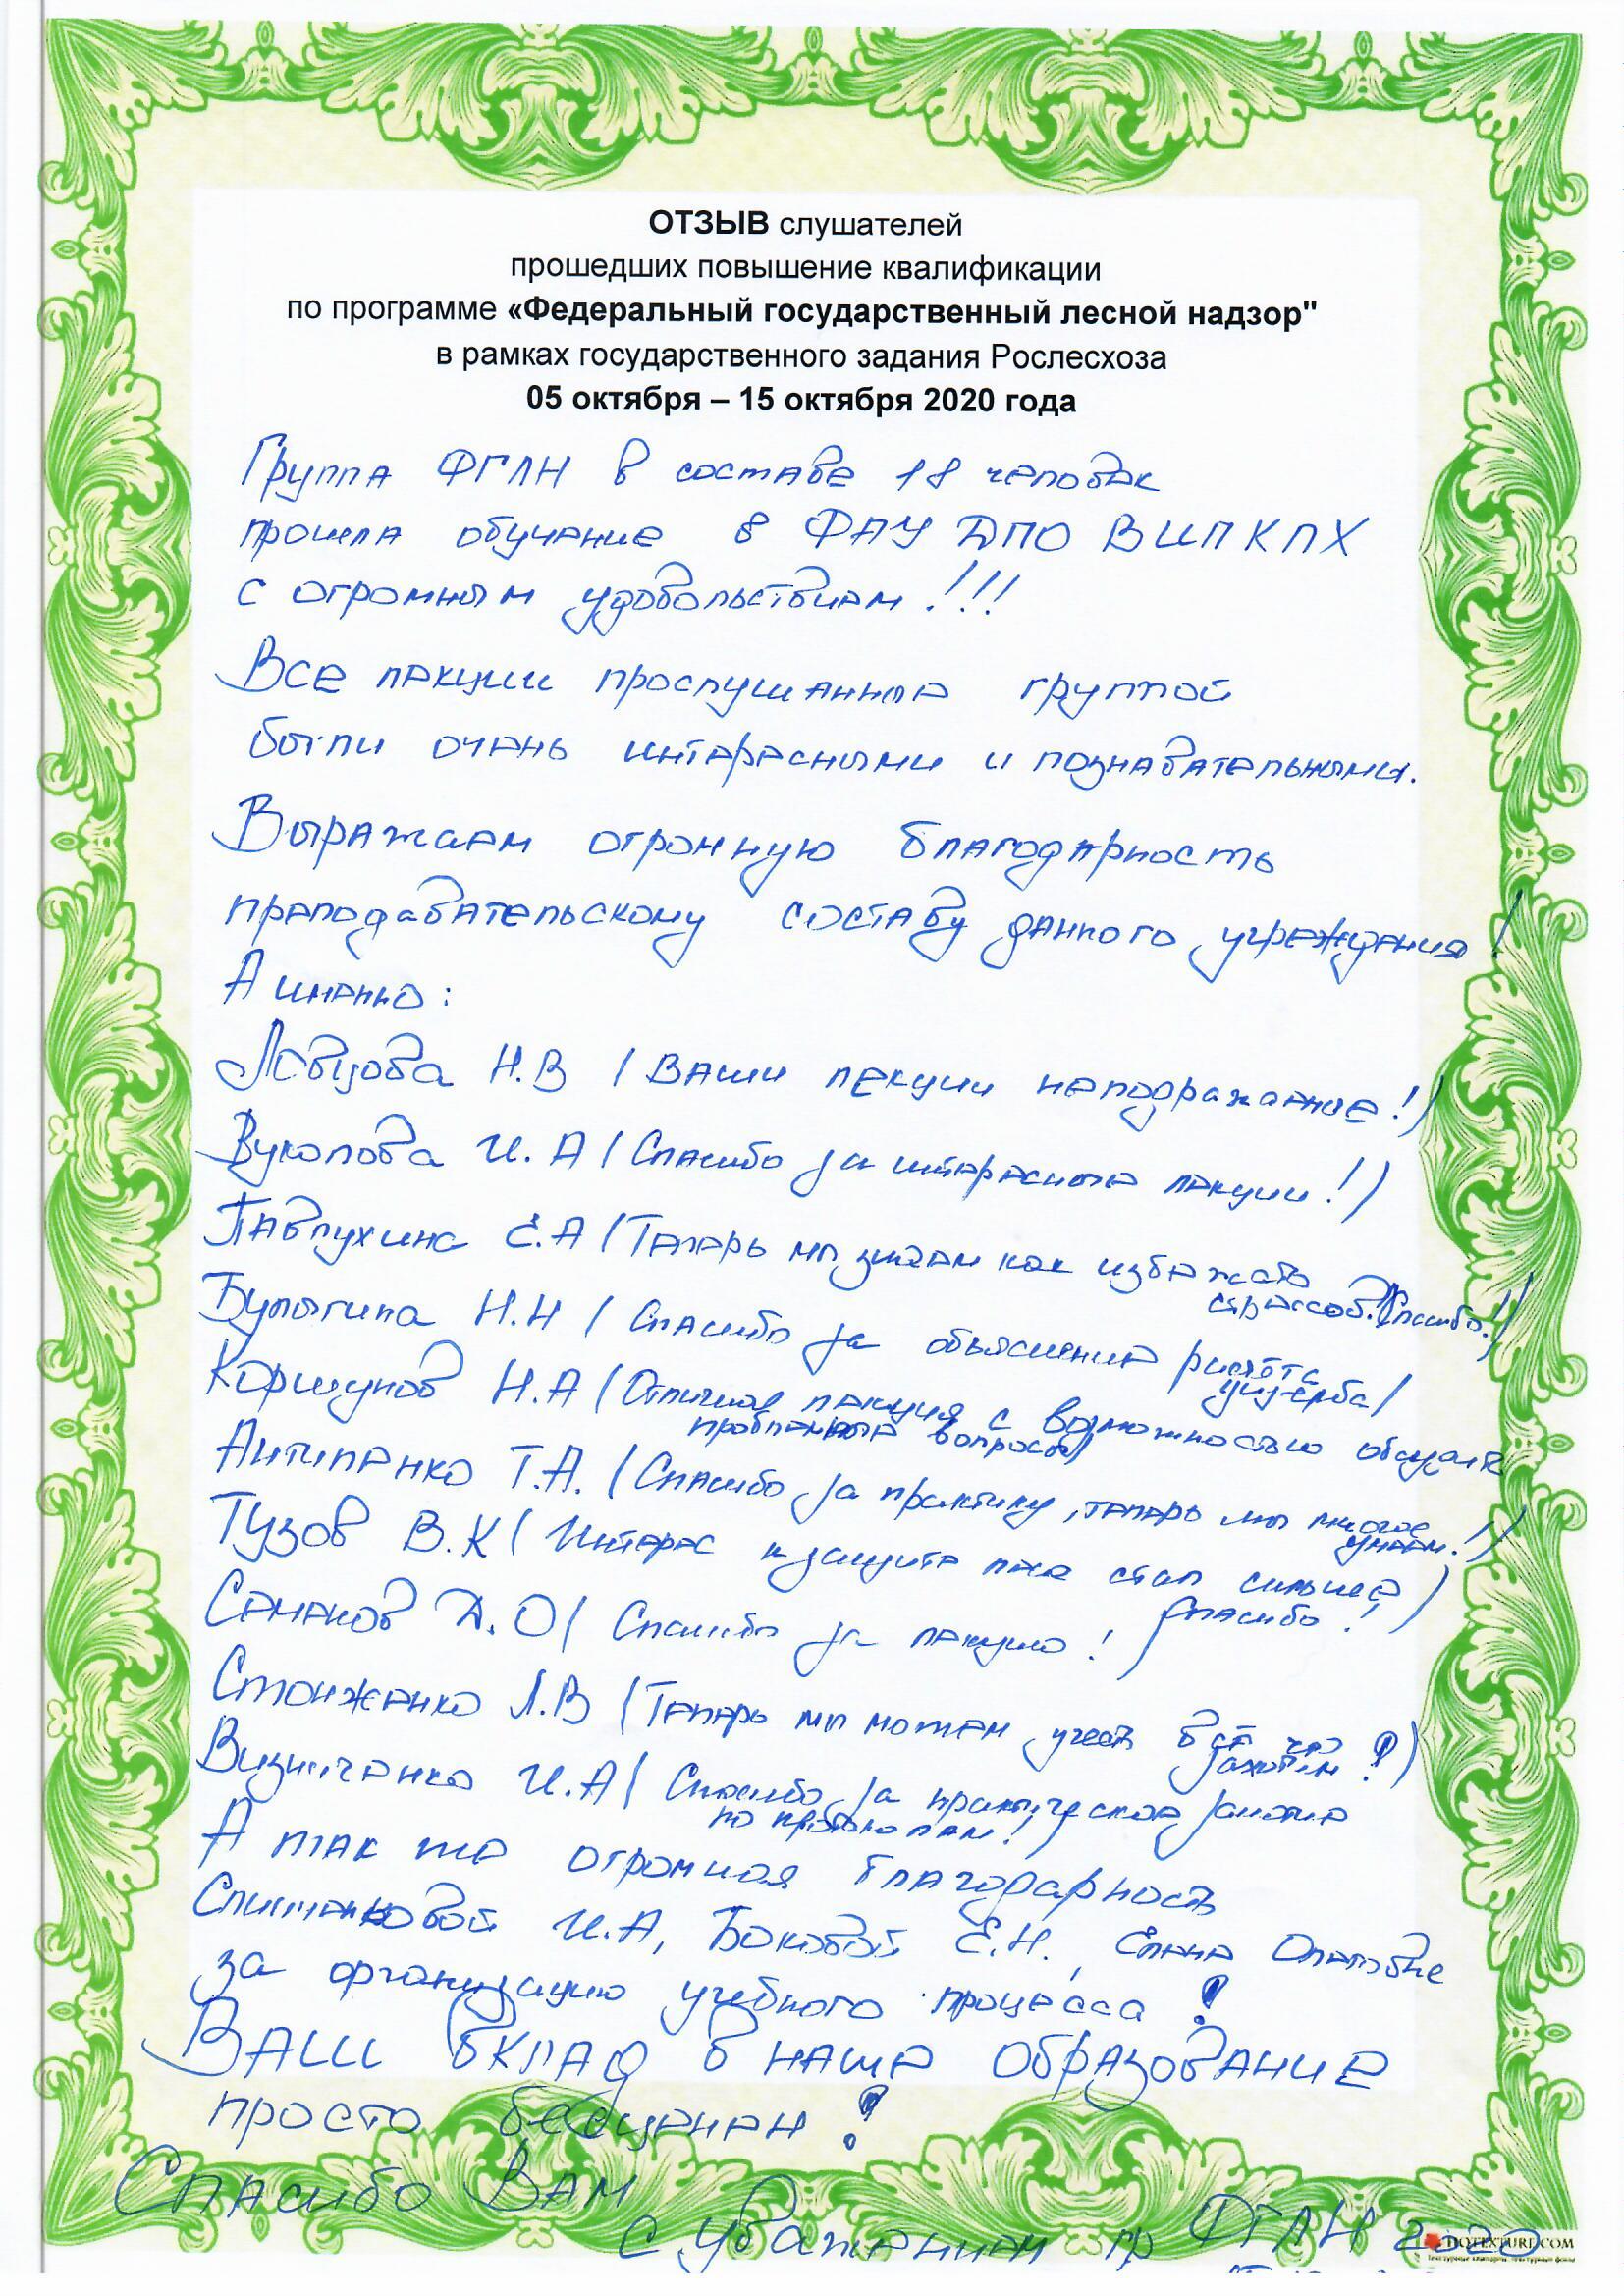 ОТЗЫВ слушателей
прошедших повышение квалификации
по программе «Федеральный государственный лесной надзор"
в рамках государственного задания Рослесхоза
05 октября – 15 октября 2020 года
Группа ФГЛН в составе 18 человек
прошла обучение в ФАУ ДПО ВИПКЛХ
с огромным удовольствием!!!
Все лекции прослушанные группой
были очень интересными и познавательными.
Выражаем огромную благодарность
преподавательскому составу данного учреждения!
А именно:
Ловцова Н.В (Ваши лекции неподражаемые!)
Вуколова И.А (Спасибо за интересные лекции!)
Павлухина Е.А (Теперь мы знаем как избежать
стрессов. Спасибо!)
Булыгина Н.Н (Спасибо за объяснение расчёта
ущерба)
Коршунов Н.А (Отличная лекция с возможностью обсудить
проблемные вопросы)
Антипенко Т.А. (Спасибо за практику, теперь мы многое
умеем!)
Тузов В.К (Интерес к защите леса стал сильнее)
Спасибо!
Семаков Д.О (Спасибо за лекцию!)
Стоноженко Л.В (Теперь мы можем учесть всё что
захотим!)
Визниченко И.А (Спасибо за практические занятие
по протоколам!)
А так же огромная благодарность
И.А, Боковой Е.Н., Елена Олеговне
за организацию учебного процесса!
Ваш вклад в наше образование
просто бесценен!
Спасибо Вам
С уважением гр ФГЛН 2020